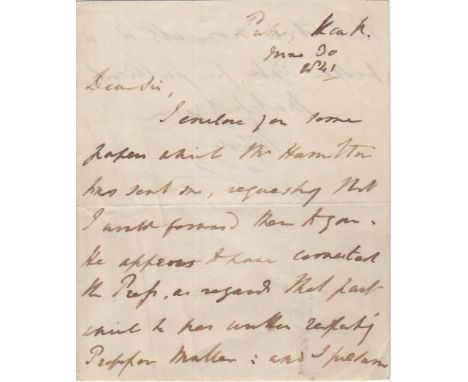 Putney Heath
June 30
1841
Dear Sir,
I enclose you some
papers which Mr Hamilton
has sent me, requesting that
I would forward them to you.
He appears to have corrected
the Press, as regards that part
which he has written respecting
Professor Muller: and I presume